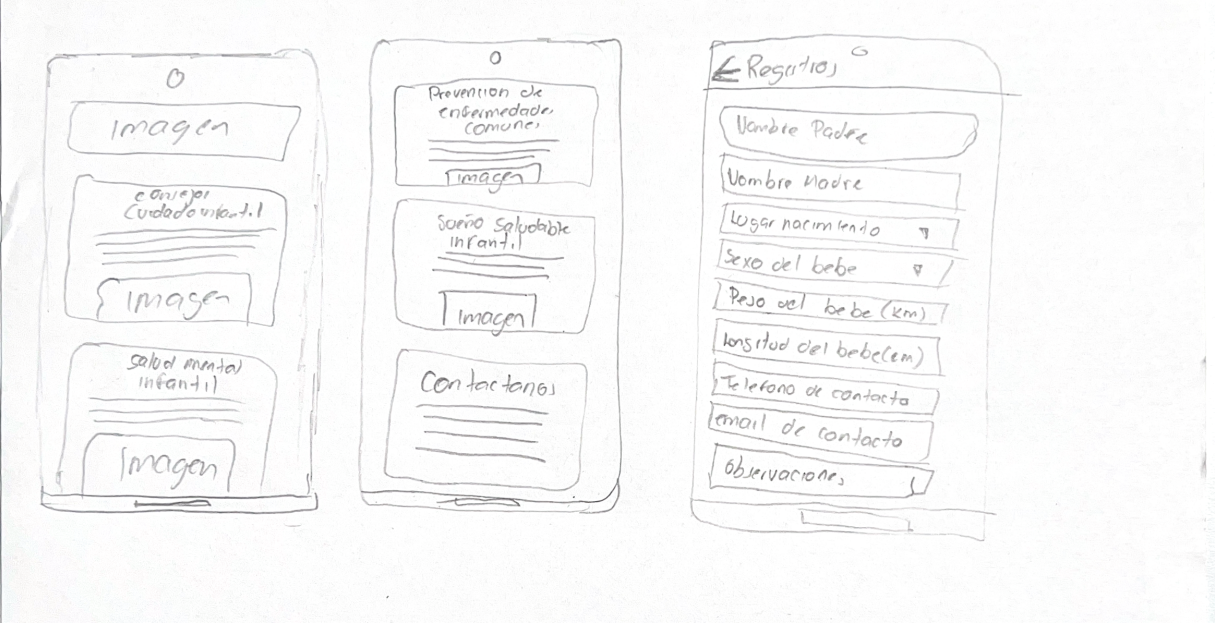 Imagen
consejos
cuidado infantil
Imagen
salud mental
infantil
Imagen
Prevencion de
enfermedades
comunes
Imagen
Sueño saludable
infantil
Imagen
Contactanos
Registros
Nombre Padre
Nombre Madre
Lugar nacimiento
Sexo del bebe
Peso del bebe (km)
Longitud del bebe (cm)
Telefono de contacto
email de contacto
Observaciones